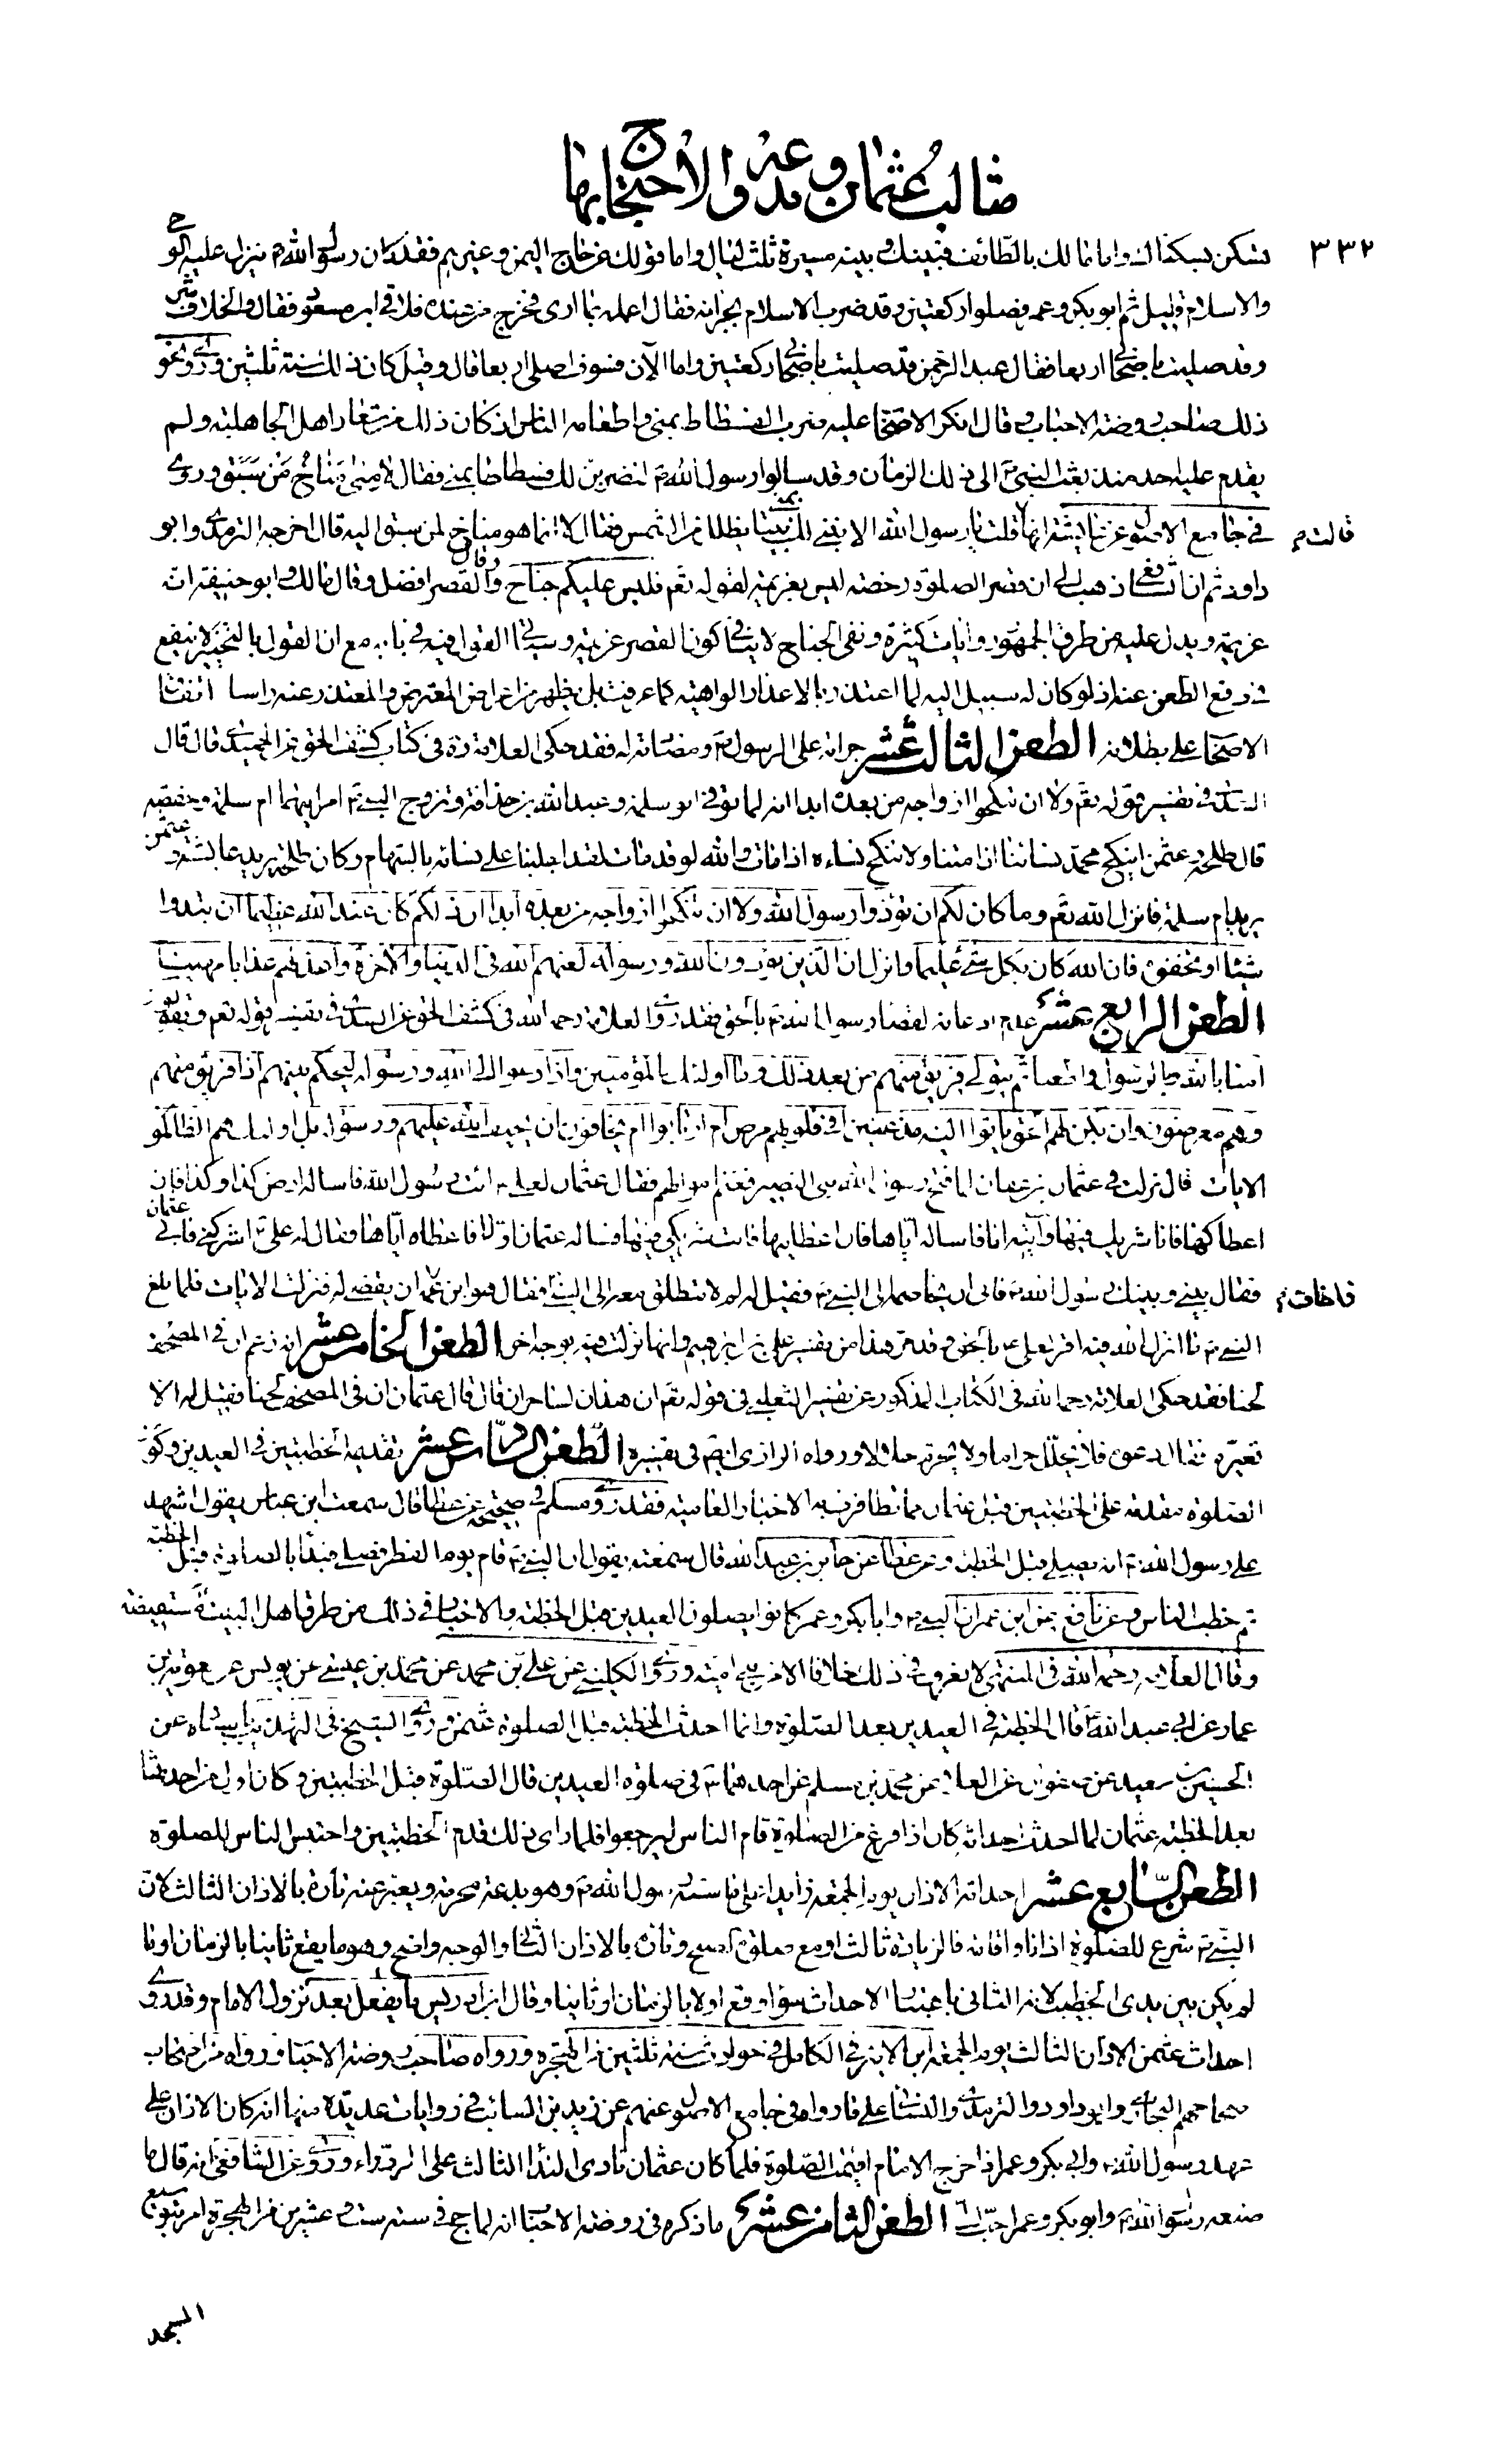 مثالب عثمان وبدعه والاحتجاج بها
٣٣٢
تسكن بسكناك واما مالك بالطائف فبينك وبينه مسيرة ثلث ليال واما قولك عن حاج اليمن وغيرهم فقد كان رسول الله ص ينزل عليه الوحي
والاسلام قليل ثم ابو بكر وعمر فصلوا ركعتين وقد ضرب الاسلام بجرانه فقال اعمل بما ارى فخرج من عنده فلاقى ابن مسعود فقال والخلاف شر
وقد صليت باصحابي اربعا فقال عبد الرحمن قد صليت باصحابي ركعتين واما الآن فسوف اصلى اربعا قال وقيل كان ذلك سنة ثلثين وروى نحو
ذلك صاحب روضة الاحباب وقال انكر الاصحاب عليه ضرب الفسطاط بمنى واطعامه الناس اذ كان ذلك من شعار اهل الجاهلية ولم
يقدم عليه احد منذ بعث النبي ص الى ذلك الزمان وقد سالوا رسول الله ص انضربن لك فسطاطا بمنى فقال لا منى مناخ من سبق وروى
في جامع الاصول عن عايشة انها قالت قلت يا رسول الله الا نبني لك بمنى بيتا يظلك من الشمس فقال لا انما هو مناخ لمن سبق اليه قال اخرجه الترمذي وابو
داود ثم ان الشافعي ذهب الى ان قصر الصلوة رخصة ليس بعزيمة لقوله تعم فليس عليكم جناح وقال والقصر افضل وقال مالك وابو حنيفة انه
عزيمة ويدل عليه من طرق الجمهور روايات كثيرة ونفى الجناح لا ينافي كون القصر عزيمة وسياتي القول فيه في بابه مع ان القول بالتخيير لا ينفع
في دفع الطعن عنه اذ لو كان له سبيل اليه لما اعتذر بالاعذار الواهية كما عرفت بل يظهر من اعراض المعترض والمعتذر عنه راسا اتفاق
الاصحاب على بطلانه الطعن الثالث عشر جراته على الرسول ص ومضادته له فقد حكى العلامة ره في كتاب كشف الحق عن الحميدي قال قال
السدي في تفسير قوله تعم ولا ان تنكحوا ازواجه من بعده ابدا انه لما توفى ابو سلمة وعبد الله بن حذافة وتزوج النبي ص امراتيهما ام سلمة وحفصة
قال طلحة وعثمن اينكح محمد نساءنا اذا متنا ولا ننكح نساءه اذا مات والله لو قد مات لقد اجلبنا على نسائه بالسهام وكان طلحة يريد عايشة وعثمن
يريد ام سلمة فانزل الله تعم وما كان لكم ان توذوا رسول الله ولا ان تنكحوا ازواجه من بعده ابدا ان ذلكم كان عند الله عظيما ان تبدوا
شيئا او تخفوه فان الله كان بكل شئ عليما وانزل ان الذين يوذون الله ورسوله لعنهم الله في الدنيا والاخرة واعد لهم عذابا مهينا
الطعن الرابع عشر عدم اذعانه لقضاء رسول الله ص بالحق فقد روى العلامة رحمه الله في كشف الحق عن السدي في تفسير قوله تعم ويقولون
امنا بالله وبالرسول واطعنا ثم يتولى فريق منهم من بعد ذلك وما اولئك بالمؤمنين واذا دعوا الى الله ورسوله ليحكم بينهم اذا فريق منهم
معرضون وان يكن لهم الحق ياتوا اليه مذعنين افي قلوبهم مرض ام ارتابوا ام يخافون ان يحيف الله عليهم ورسوله بل اولئك هم الظالمون
الايات قال نزلت في عثمان بن عفان لما فتح رسول الله بني النضير فغنم اموالهم فقال عثمان لعلي ع ائت رسول الله فاساله ارض كذا وكذا فان
اعطاكها فانا شريك فيها وآتيه انا فاساله اياها فان اعطانيها فانت شريكي فيها فساله عثمان اولا فاعطاه اياها فقال له علي ع اشركني فابى عثمان
فقال بيني وبينك رسول الله ص فابى ان يخاصمه الى النبي ص فقيل له لم لا تنطلق معه الى النبي فقال هو ابن عمه فاخاف ان يقضي له فنزلت الايات فلما بلغ
النبي ص ما انزل الله فيه اقر لعلي ع بالحق وقد مر هذا من تفسير علي بن ابرهيم وانها نزلت فيه بوجه اخر الطعن الخامس عشر انه زعم ان في المصحف
لحنا فقد حكى العلامة رحمه الله في الكتاب المذكور عن تفسير الثعلبي في قوله تعم ان هذان لساحران قال قال عثمان ان في المصحف لحنا فقيل له الا
تغيره فقال دعوه فلا يحلل حراما ولا يحرم حلالا ورواه الرازي ايضا في تفسيره الطعن السادس عشر تقديمه الخطبتين في العيدين وكون
الصلوة مقدمة على الخطبتين قبل عثمان مما تظافرت به الاخبار العامية فقد روى مسلم في صحيحه عن عطا قال سمعت ابن عباس يقول اشهد
على رسول الله ص انه يصلى قبل الخطبة وعن عطا عن جابر بن عبد الله قال سمعته يقول ان النبي ص قام يوم الفطر فصلى فبدأ بالصلوة قبل الخطبة
ثم خطب الناس وعن نافع عن ابن عمر ان النبي ص وابا بكر وعمر كانوا يصلون العيدين قبل الخطبة والاخبار في ذلك من طرق اهل البيت ع مستفيضة
وقال العلامة رحمه الله في المنتهى لا نعرف في ذلك خلافا الا من بني امية وروى الكليني عن علي بن محمد عن محمد بن عيسى عن يونس عن معوية بن
عمار عن ابي عبد الله ع قال الخطبة في العيدين بعد الصلوة وانما احدث الخطبة قبل الصلوة عثمن وروى الشيخ في التهذيب باسناده عن
الحسين بن سعيد عن صفوان عن العلاء عن محمد بن مسلم عن احدهما ع في صلوة العيدين قال الصلوة قبل الخطبتين وكان اول من احدثها
بعد الخطبة عثمان لما احدث احداثه كان اذا فرغ من الصلوة قام الناس ليرجعوا فلما راى ذلك قدم الخطبتين واحتبس الناس للصلوة
الطعن السابع عشر احداثه الاذان يوم الجمعة زايدا على ما سنه رسول الله ص وهو بدعة محرمة ويعبر عنه تارة بالاذان الثالث لان
النبي ص شرع للصلوة اذانا واقامة فالزيادة ثالث او مع صلوة الصبح وتارة بالاذان الثاني والوجه واضح وهو ما يقع ثانيا بالزمان او ما
لم يكن بين يدي الخطيب لانه الثاني باعتبار الاحداث سواء وقع اولا بالزمان او ثانيا وقال ابن ادريس ما يفعل بعد نزول الامام وقد روى
احداث عثمن الاذان الثالث يوم الجمعة ابن الاثير في الكامل في حوادث سنة ثلثين من الهجرة ورواه صاحب روضة الاحباب ورواه من اصحاب
صحاحهم البخاري وابو داود والترمذي والنسائي على ما رواه في جامع الاصول عنهم عن زيد بن السائب في روايات عديدة منها انه كان الاذان على
عهد رسول الله ص وابي بكر وعمر اذا خرج الامام اقيمت الصلوة فلما كان عثمان نادى النداء الثالث على الزوراء وروى عن الشافعي انه قال ما
صنعه رسول الله ص وابو بكر وعمر احب الى الطعن الثامن عشر ما ذكره في روضة الاحباب انه لما حج في سنة ست وعشرين من الهجرة امر بتوسيع
المسجد